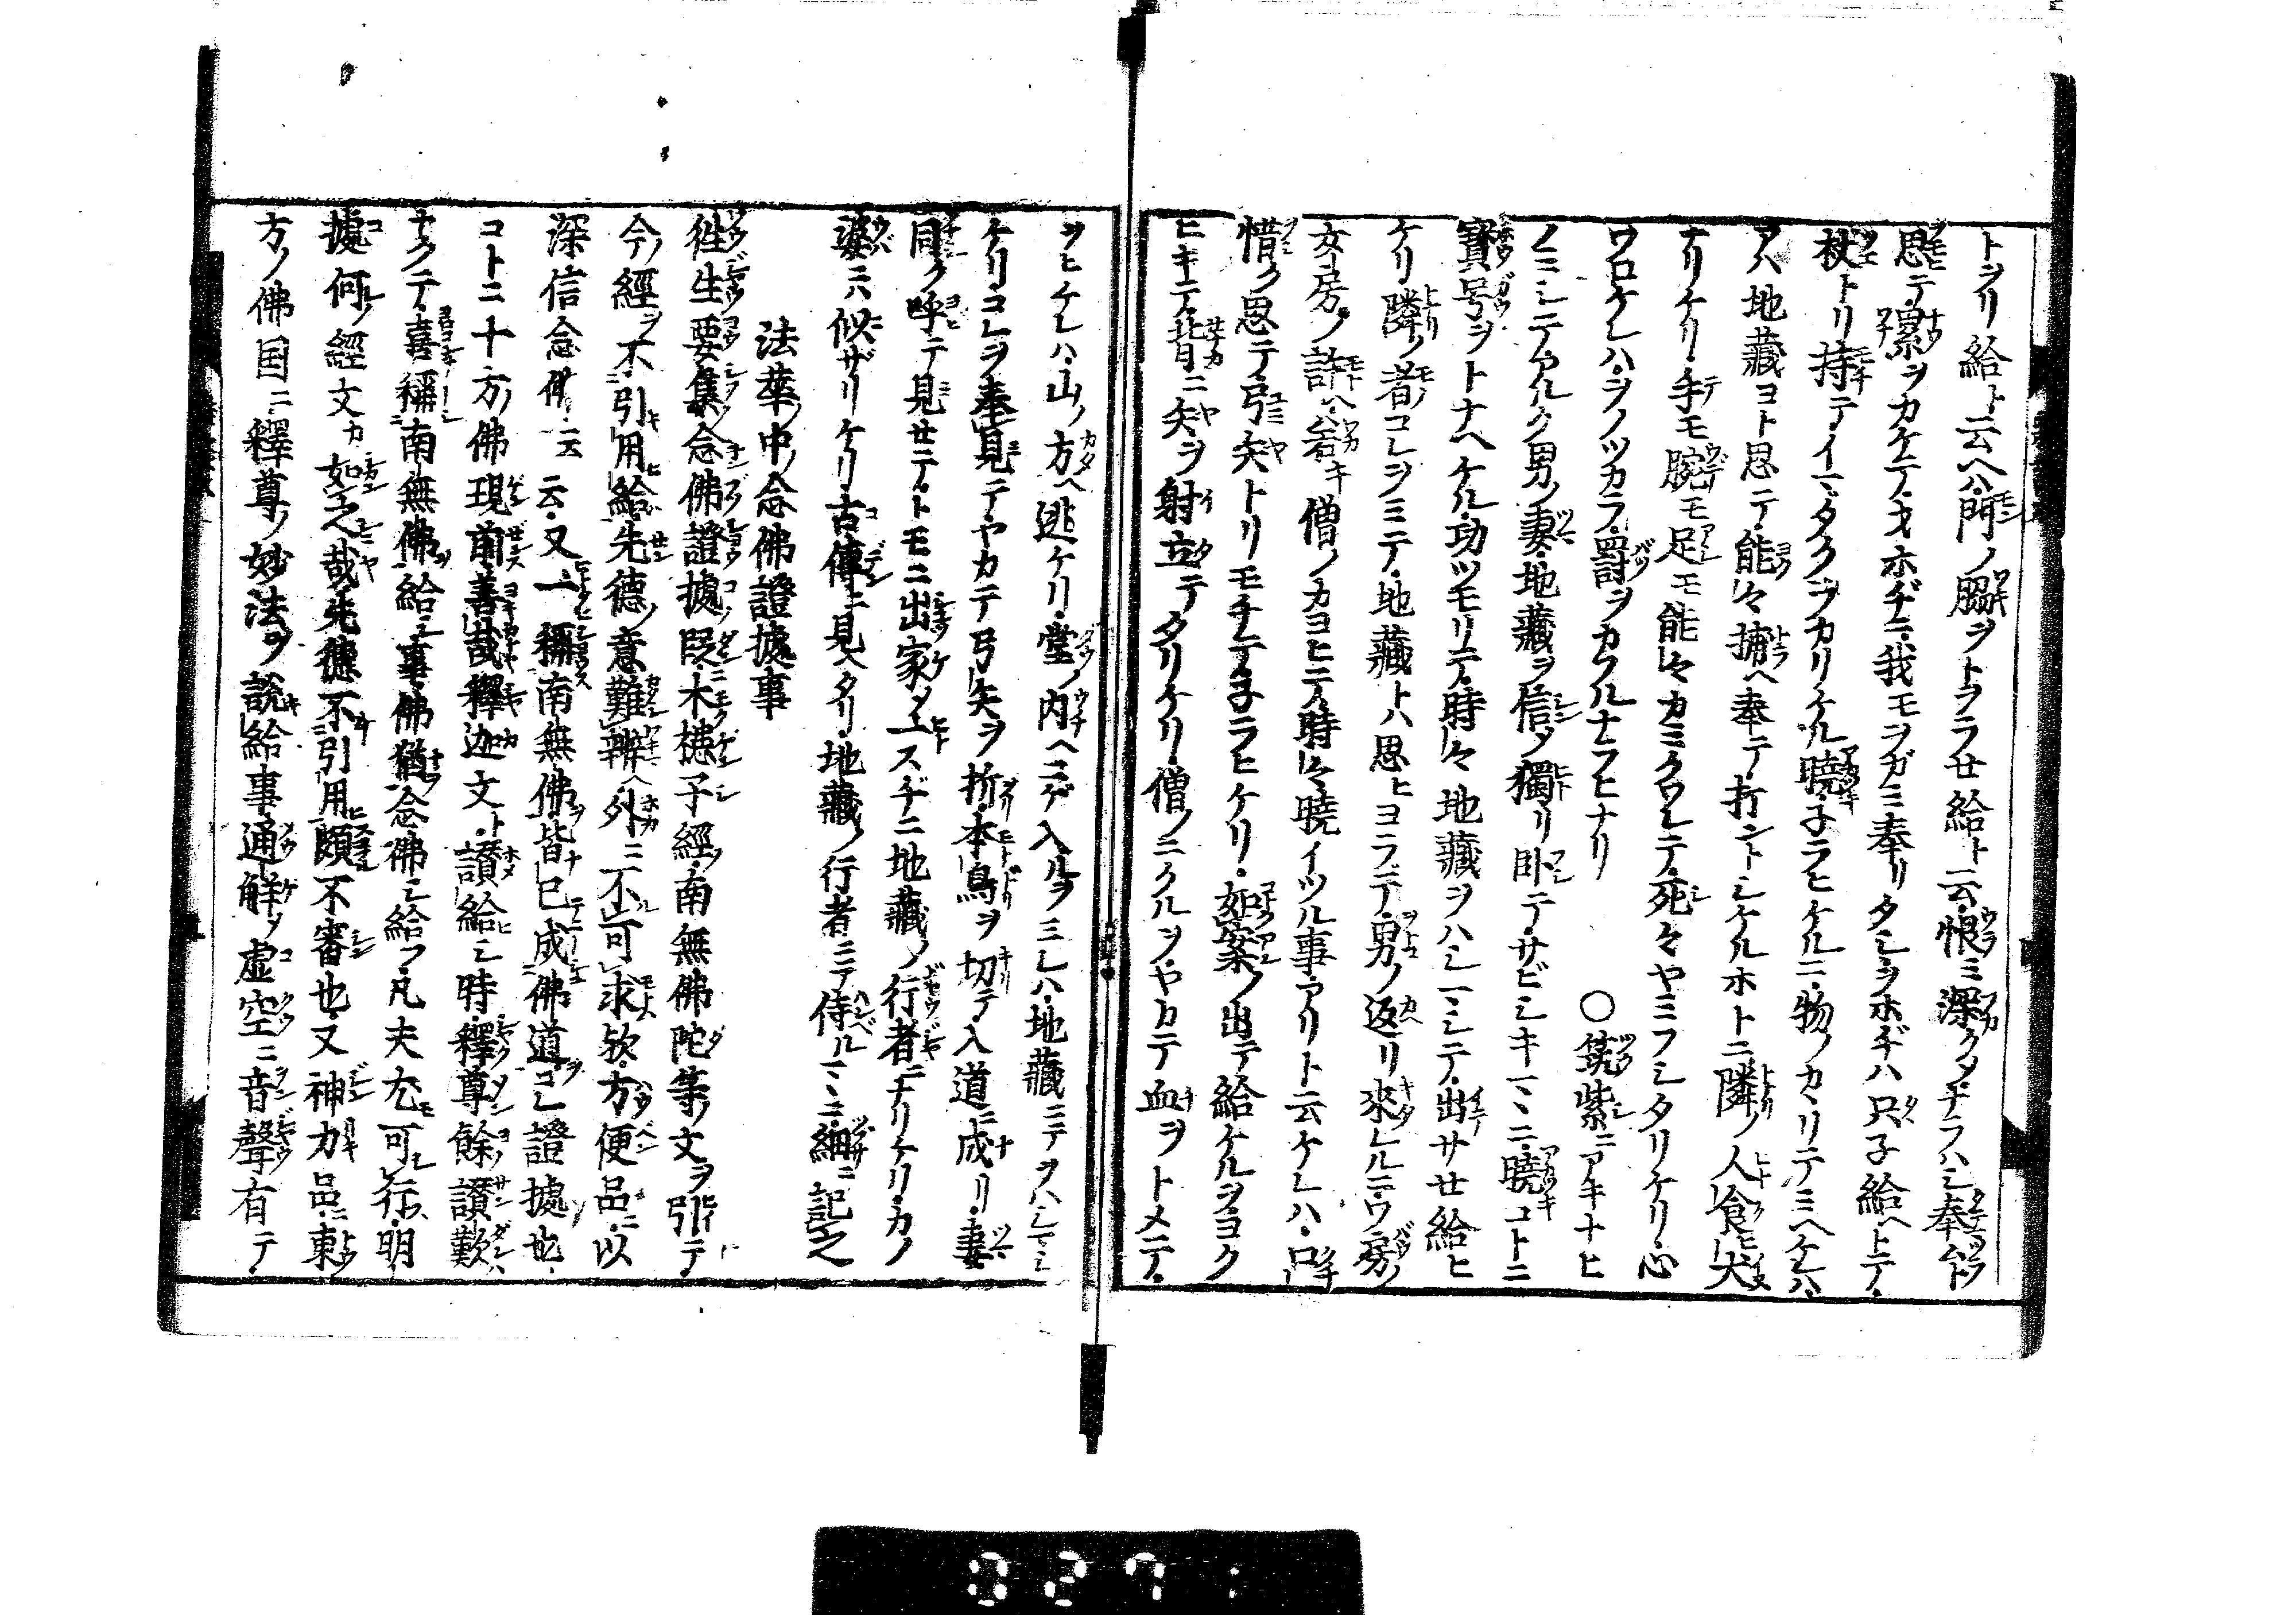 トヲリ給ト云ヘハ門ノ脇ヲトヲラせ給ト云恨ミ深クタチラハシ奉ムト
思テ縲ヲカケテオホチニ我モヲガミ奉リタシヲホヂハ只子給ヘトテ
杖トリ持テイマタクラカリケル曉子ラヒケルニ物ノカヽリテミヘケレハ
スハ地藏ヨト思テ能々捕ヘ奉テ打ントシケルホトニ隣ノ人食犬
ナリケリ手モ腕モ足モ能々カミクワレテ死々ヤミフシタリケリ心
ワロケレハヲノツカラ罸ヲカフルナラヒナリ　〇筑紫ニアキナヒ
ノミシテアルク男ノ妻地藏ヲ信ノ獨リ卧テサビシキマヽニ曉コトニ
寳号ヲトナヘケル功ツモリテ時々地藏ヲハシマシテ出サせ給ヒ
ケリ隣ノ者コレヲミテ地藏トハ思ヒヨラデ男ノ返リ來レルニウ房ノ
女房ノ許ヘ若キ僧ノカヨヒテ時々曉イツル事アリト云ケレハ口
惜ク思テ弓矢トリモチテ子ラヒケリ如案ノ出テ給ケルヲヨク
ヒキテ背ニ矢ヲ射立テタリケリ僧ノニクルヲヤカテ血ヲトメテ
ヲヒケレハ山ノ方ヘ逃ケリ堂ノ内ヘニゲ入ルヲミレハ地藏ニテヲハシマシ
ケリコレヲ奉見テヤカテ弓矢ヲ折本鳥ヲ切テ入道ニ成リ妻
同ク呼テ見せテトモニ出家メ一スヂニ地藏ノ行者ニナリケリカノ
婆ニハ似ザリケリ古傳ニ見ヘタリ地藏ノ行者ニテ侍ルマヽニ細ニ記之
法華ノ中ノ念佛證據事
徃生要集ノ念佛證據段木槵子經ノ南無佛陀等ノ文ヲ引テ
今ノ經ヲ不引用給先德ノ意難辨ヘ外ニ不可求欤方便品ニ以
深信念佛云云又一稱南無佛皆已成佛道コレ證據也
コトニ十方ノ佛現前善哉釋迦文ト讃給シ時釋尊餘讃歎ハ
ナクテ喜稱南無佛給シ事佛猶念佛シ給フ凡夫尤可行明
據何ノ經文カ如之哉先德不引用頗不審也又神力品ニ東
方ノ佛国ニ釋尊ノ妙法ヲ說給事通解ノ虚空ニ音聲有テ